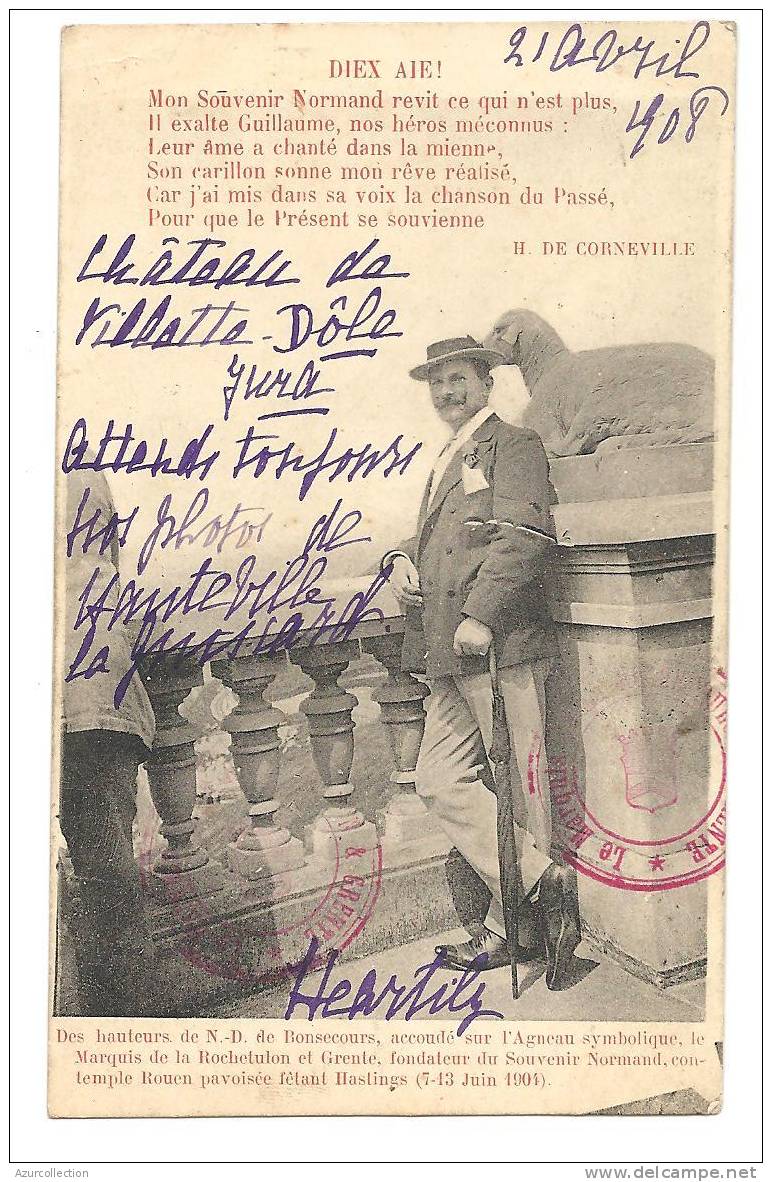 21 Avril
1908
DIEX AIE!
Mon Souvenir Normand revit ce qui n'est plus,
Il exalte Guillaume, nos héros méconnus :
Leur âme a chanté dans la mienne,
Son carillon sonne mon rêve réalisé,
Car j'ai mis dans sa voix la chanson du Passé,
Pour que le Présent se souvienne
H. DE CORNEVILLE
Château de
Villette-Dôle
Jura
Attends toujours
photos de
Hauteville
la Guichard
Heartily
& GRENTE
Le Marquis
Des hauteurs de N.-D. de Bonsecours, accoudé sur l'Agneau symbolique, le
Marquis de la Rochetulon et Grente, fondateur du Souvenir Normand, con-
temple Rouen pavoisée fêtant Hastings (7-13 Juin 1904).
Azurcollection
www.delcampe.net